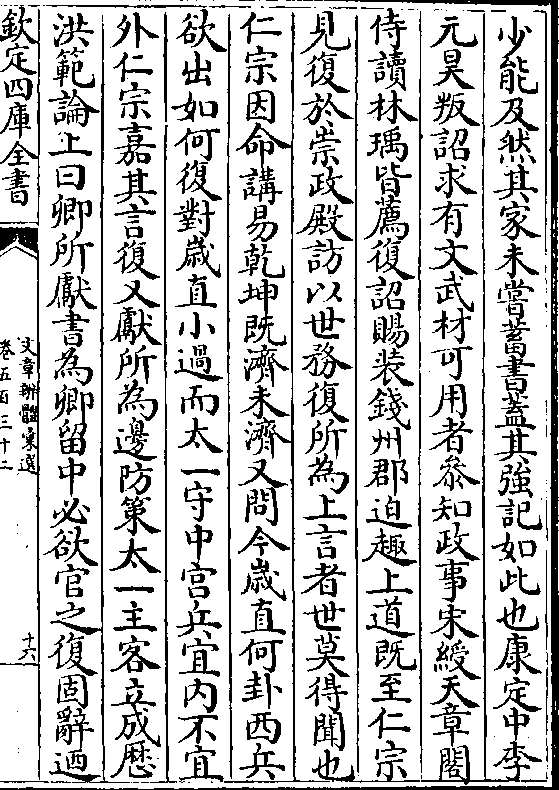 少能及然其家未嘗蓄書蓋其強記如此也康定中李
元昊叛詔求有文武材可用者叅知政事宋綬天章閣
侍讀林瑀皆薦復詔賜装錢州郡迫趣上道既至仁宗
見復於崇政殿訪以世務復所為上言者世莫得聞也
仁宗因命講易乾坤既濟未濟又問今歳直何卦西兵
欲出如何復對歳直小過而太一守中宫兵宜内不宜
外仁宗嘉其言復又獻所為邊防策太一主客立成歴
洪範論上曰卿所獻書為卿留中必欲官之復固辭廼
欽定四庫全書
文章辨體彚選
卷五百三十二
十六